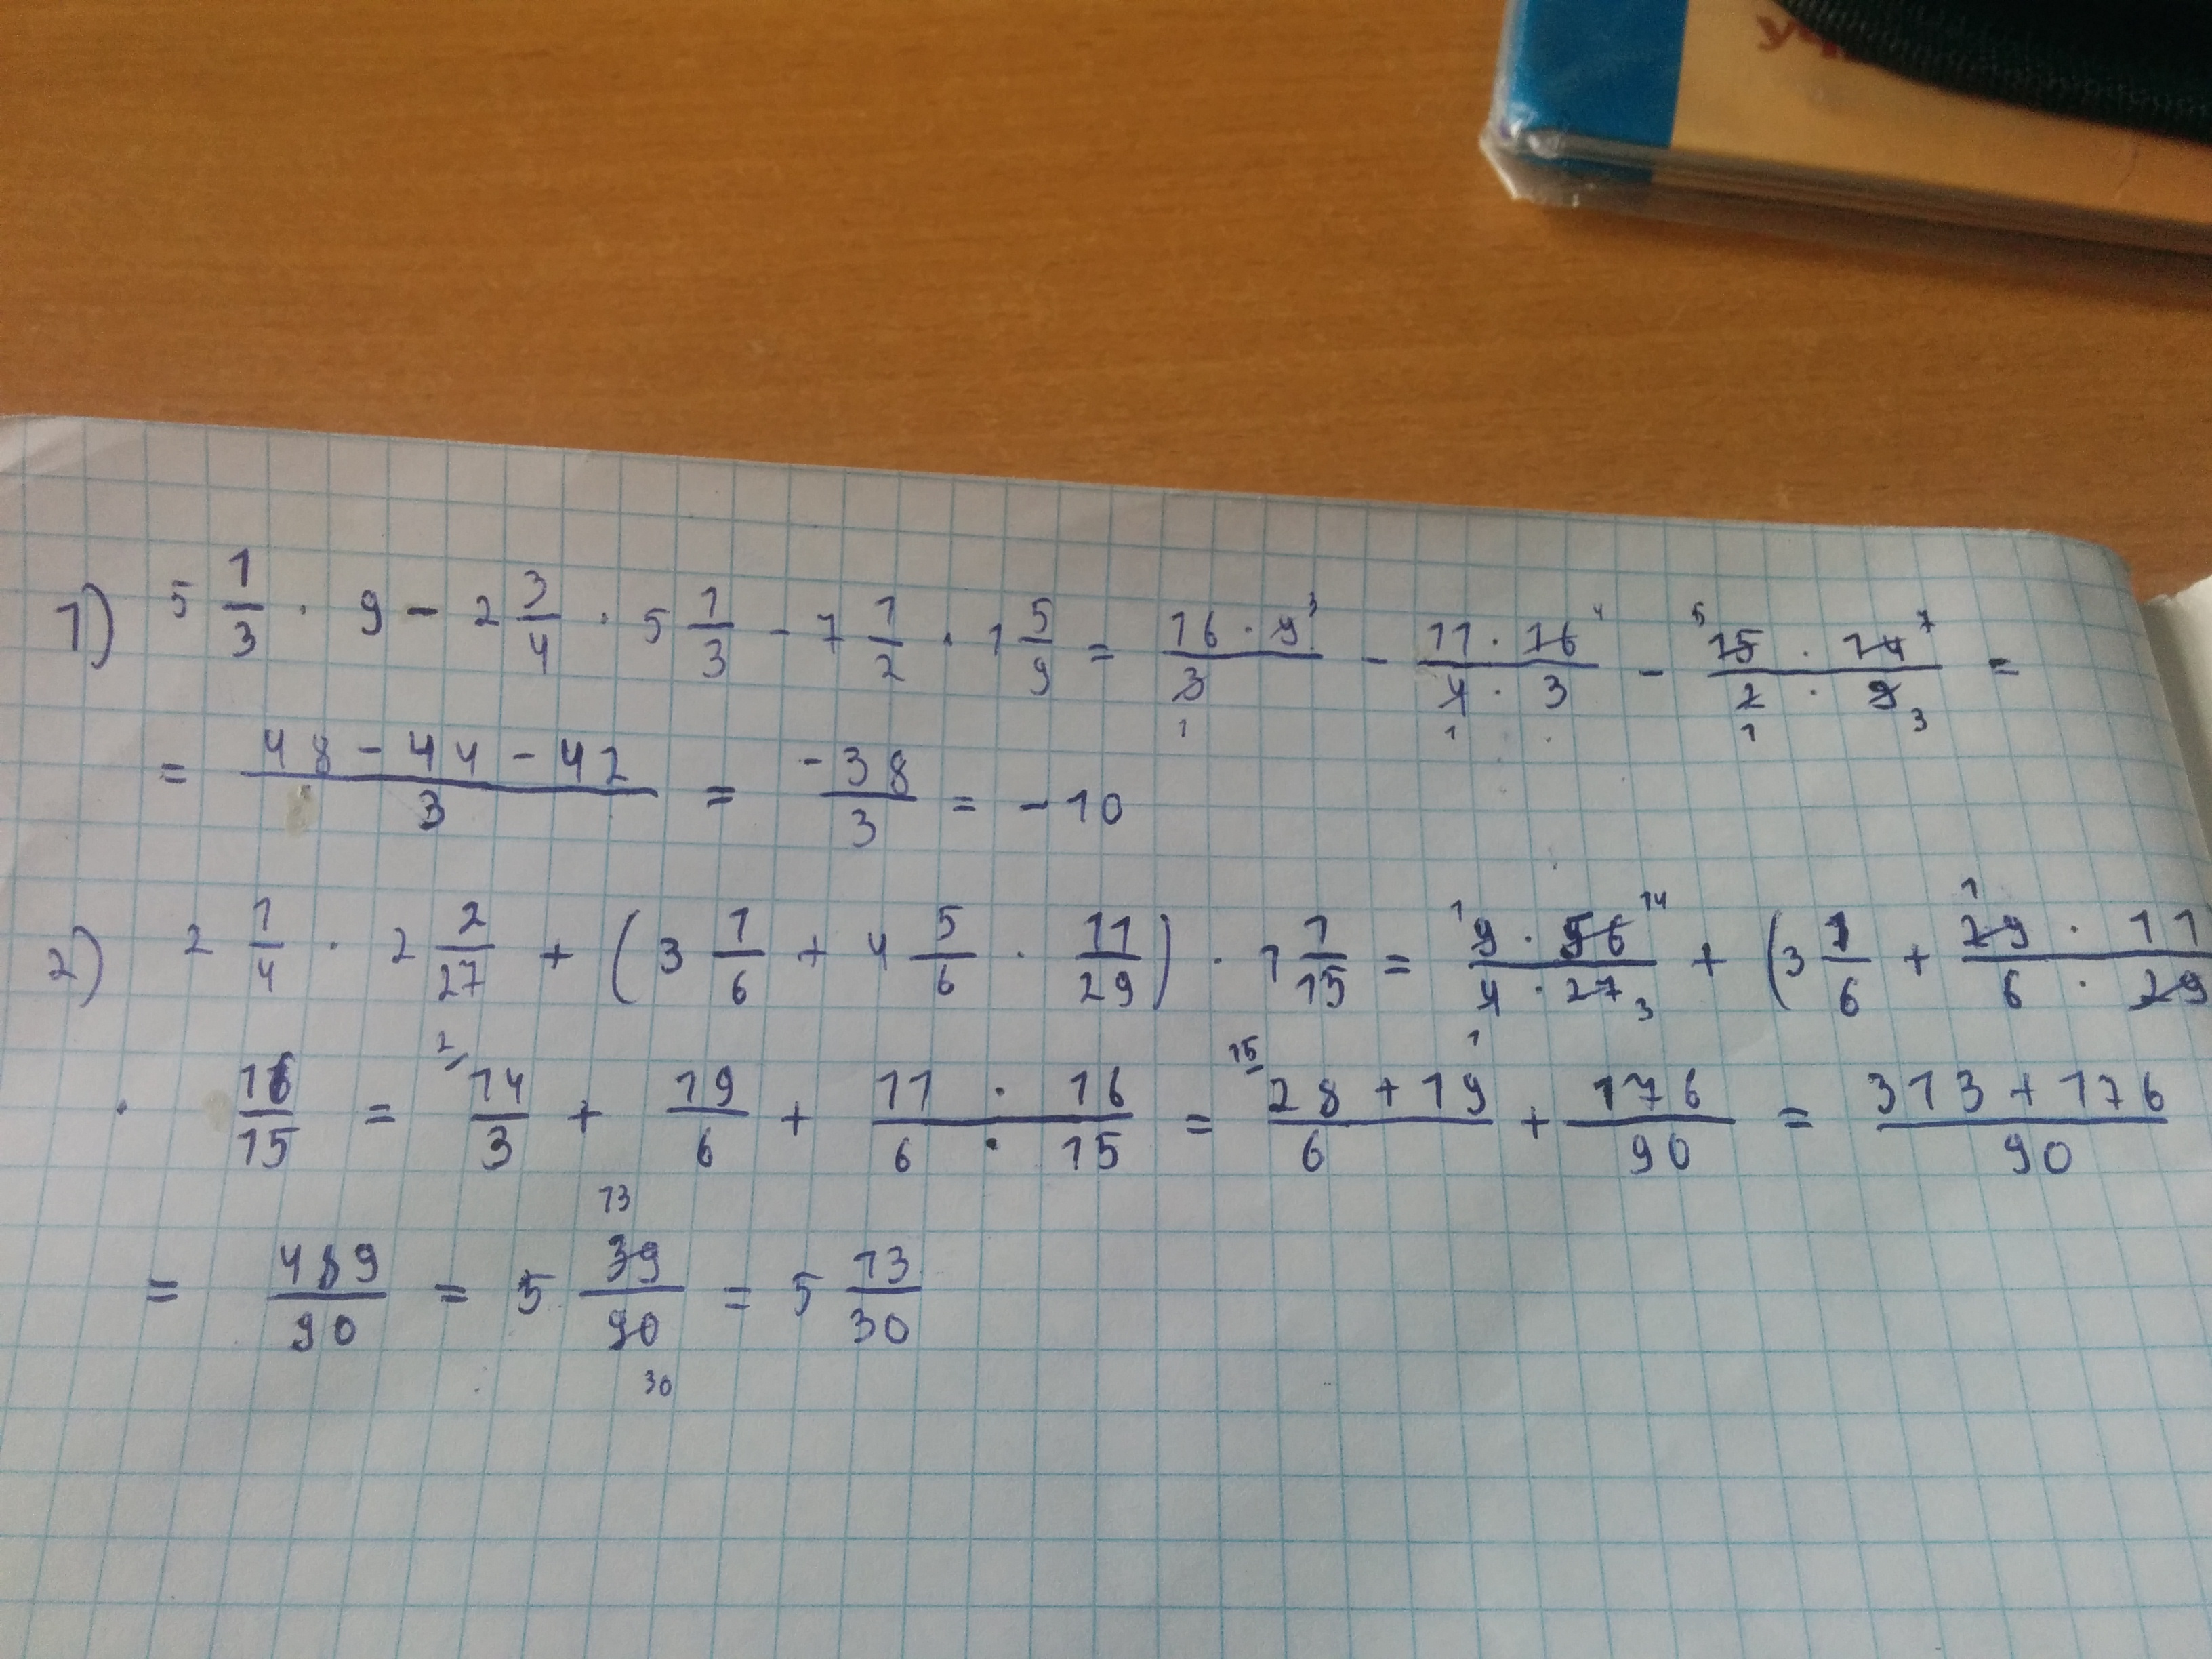 УЧ
1) 5 1/3 · 9 - 2 3/4 · 5 1/3 - 7 1/2 · 1 5/9 = 16 · 9 3/3 1 - 11 · 16 4/4 1 · 3 - 5 15 · 14 7/2 1 · 9 3 =
= 48 - 44 - 42/3 = -38/3 = -10
2) 2 1/4 · 2 2/27 + (3 1/6 + 4 5/6 · 11/29) · 1 1/15 = 1 9 · 56 14/4 1 · 27 3 + (3 1/6 + 1 29 · 11/6 · 29
· 16/15 = 2 14/3 + 19/6 + 11 · 16/6 · 15 = 15 28 + 19/6 + 176/90 = 313 + 176/90
= 489/90 = 5 13 39/90 30 = 5 13/30